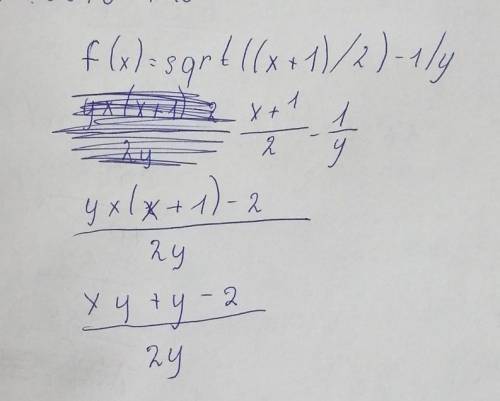 f(x)=sqrt((x+1)/2)-1/y
x+1/2 - 1/y
yx(x+1)-2/2y
xy+y-2/2y